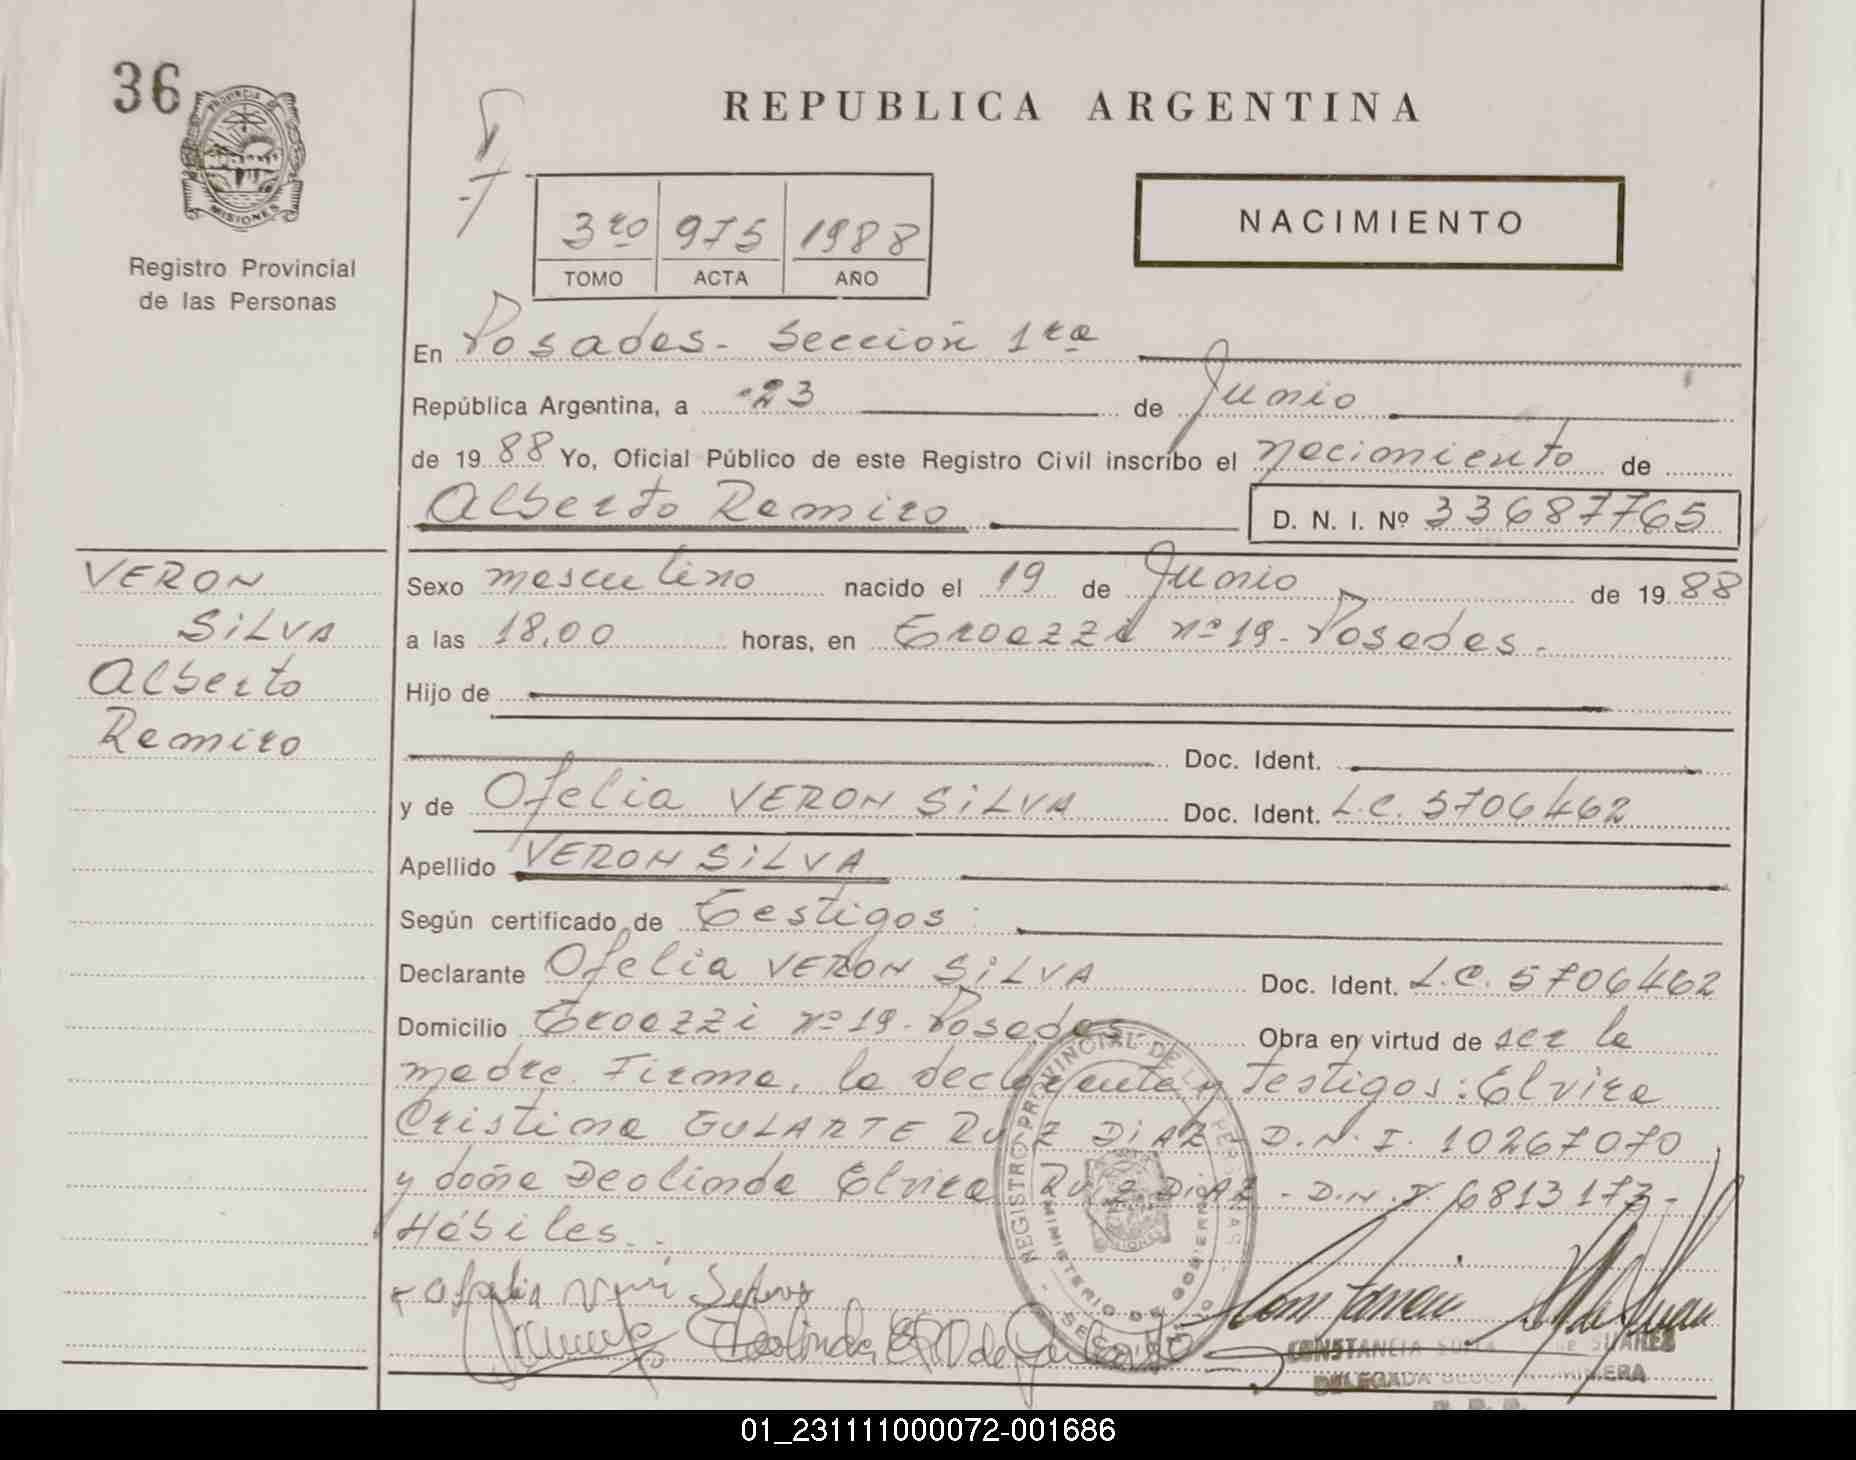 36
PROVINCIA DE
MISIONES
Registro Provincial
de las Personas
REPUBLICA ARGENTINA
NACIMIENTO
3ro 975 1988
TOMO ACTA AÑO
En Posadas - Sección 1ra
República Argentina, a 23 de Junio
de 1988 Yo, Oficial Público de este Registro Civil inscribo el nacimiento de
Alberto Ramiro D. N. I. Nº 33687765
VERON
SILVA
Alberto
Ramiro
Sexo masculino nacido el 19 de Junio de 1988
a las 18,00 horas, en Troazzi nº 19 - Posadas.
Hijo de
Doc. Ident.
y de Ofelia VERON SILVA Doc. Ident. L.C. 5706462
Apellido VERON SILVA
Según certificado de Testigos:
Declarante Ofelia VERON SILVA Doc. Ident. L.C. 5706462
Domicilio Troazzi nº 19 - Posadas Obra en virtud de ser la
madre. Firma, la declarante y testigos: Elvira
Cristina GULARTE RUIZ DIAZ - D.N.I. 10267070
y doña Deolinda Elvira RUIZ DIAZ - D.N.I. 6813173 -
Hábiles.
REGISTRO PROVINCIAL DE LAS PERSONAS
MINISTERIO DE GOBIERNO
CONSTANCIA DE SUARES
DELEGADA SECCION PRIMERA
01_231111000072-001686